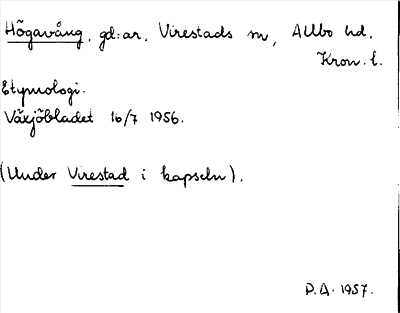 Högavång, gd:ar. Virestads sn, Allbo hd,
Kron. l.
Etymologi.
Växjöbladet 16/7 1956.
(Under Virestad i kapseln).
P.A. 1957.